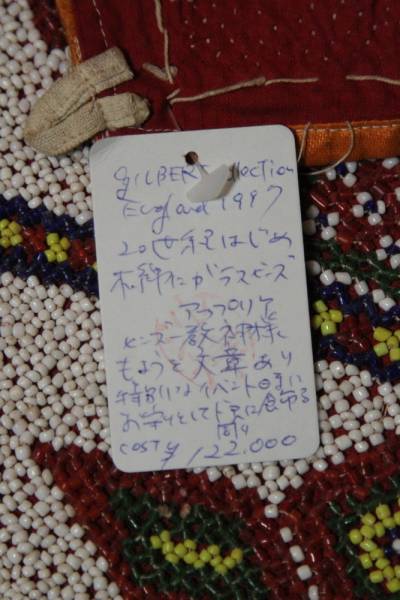 GILBERT Collection
England 1997
20世紀はじめ
木綿にガラスビーズ
アップリケ
ヒンズー教神様に
もようと文章あり
特別なイベント時に
お守りとしてドアに飾る
COST ¥122.000